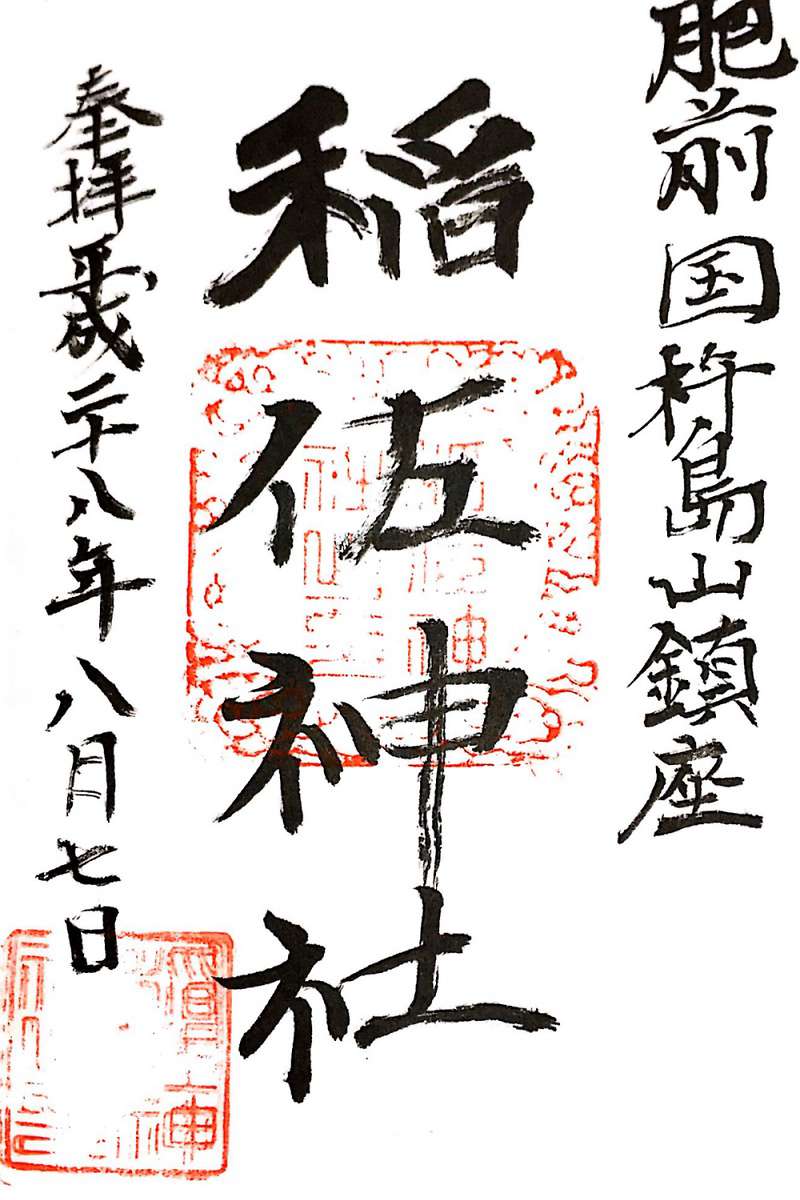 肥前国杵島山鎮座
稲佐神社
奉拝平成二十八年八月七日